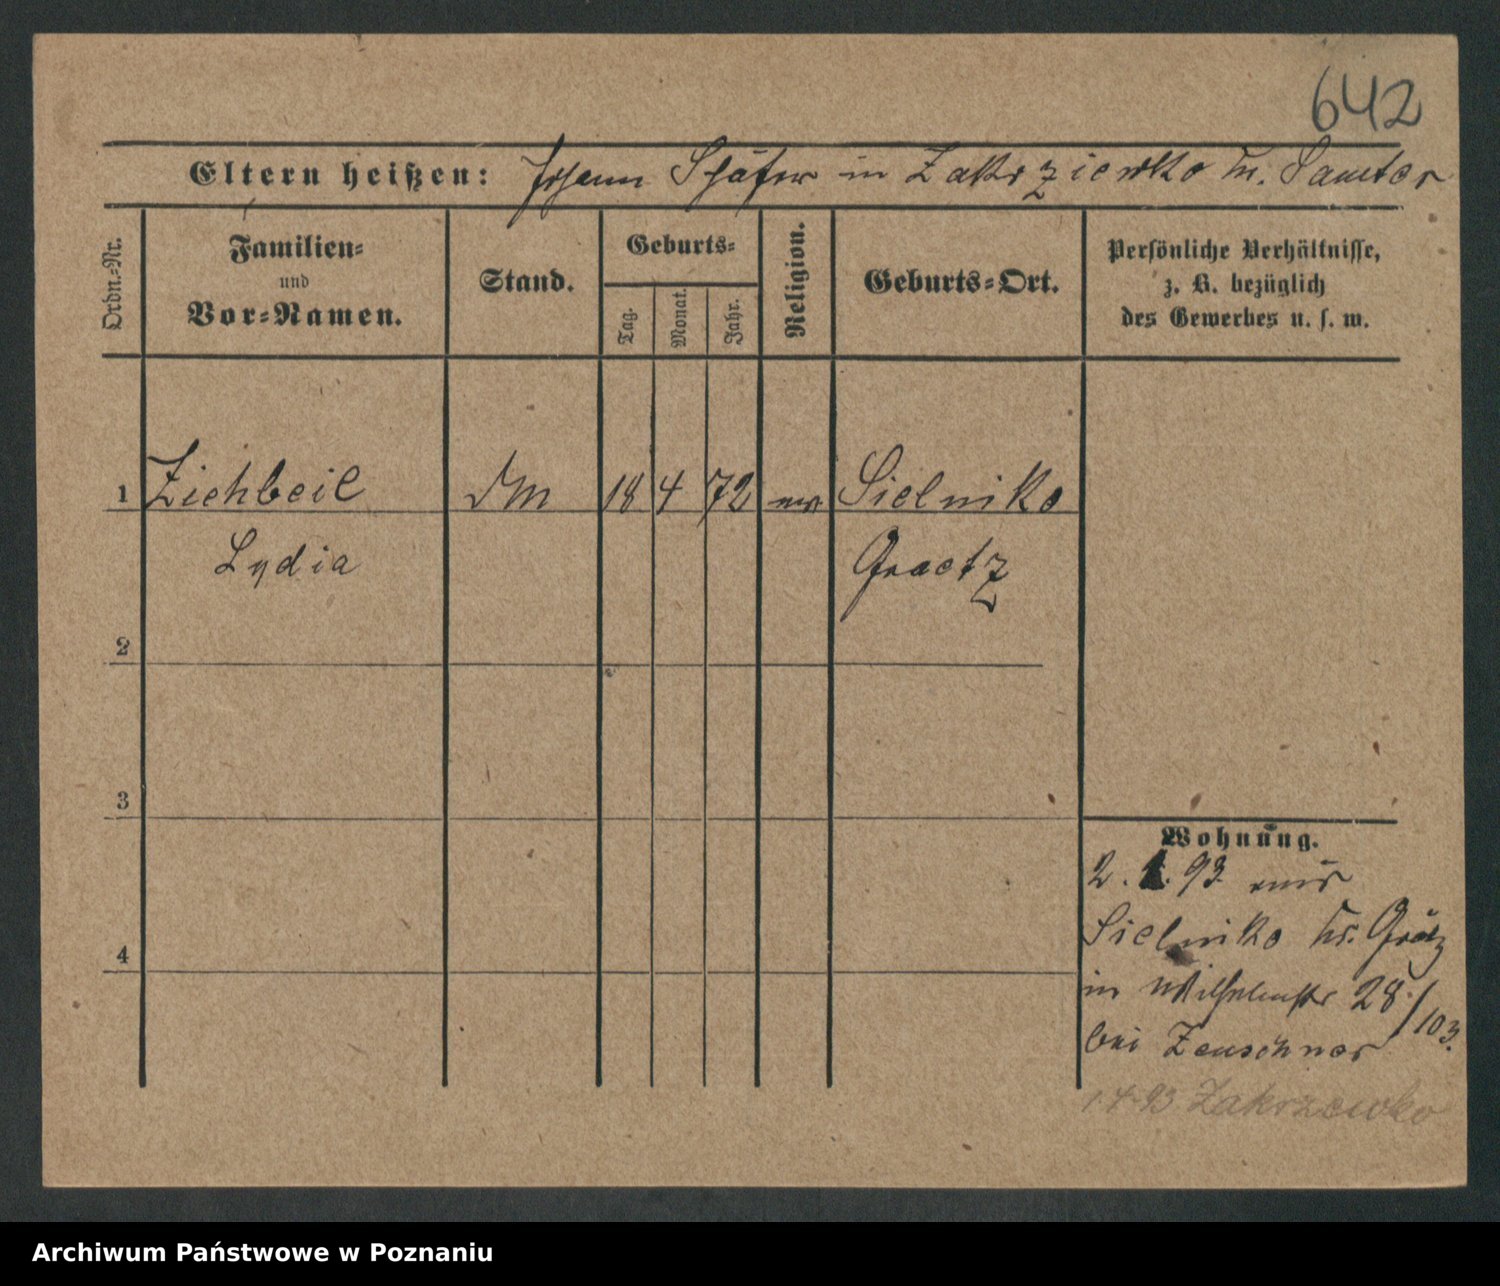 642
Eltern heißen: Johann Schäfer in Zakrziewko Kr. Samter
Ordn.=Nr.
Familien=
und
Vor=Namen.
Stand.
Geburts=
Tag.
Monat.
Jahr.
Religion.
Geburts=Ort.
Persönliche Verhältnisse,
z. B. bezüglich
des Gewerbes u. s. w.
1 Zichbeil DM 18 4 72 ev Sielniko
Lydia Graetz
2
3
4
Wohnung.
2. 1. 93 aus
Sielniko Kr. Grätz
in Wilhelmstr 28/103.
bei Zeuschner
1.4.93 Zakrzewko
Archiwum Państwowe w Poznaniu